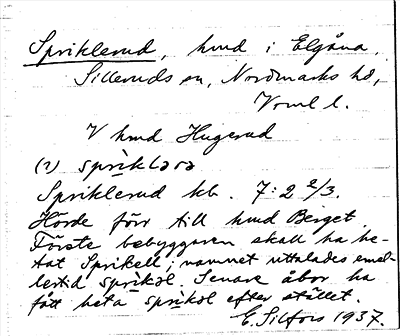 Spriklerud, hmd i Elgåna,
Silleruds sn, Nordmarks hd,
Vrml l.
V hmd Hugerud
(1) spriklərə
Spriklerud kb. 7:2 2/3.
Hörde förr till hmd Berget.
Förste bebyggaren skall ha he-
tat Sprikell; namnet uttalades emel-
lertid sprikol. Senare åbor ha
fått heta sprikol efter stället.
E. Silfors 1937.